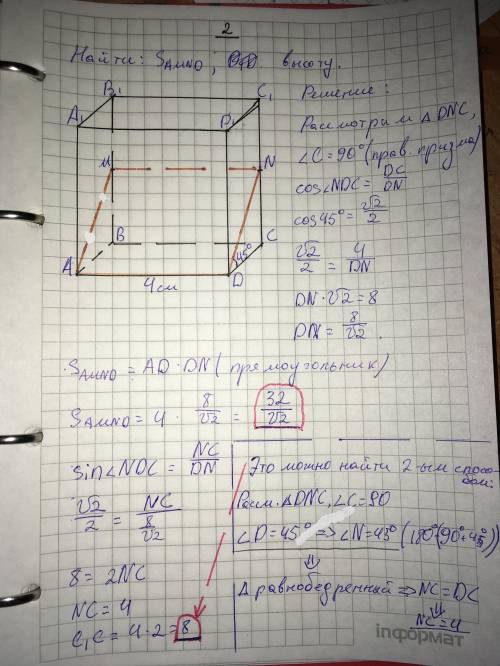 2
Найти: SAMND; высоту.
B₁
C₁
A₁
D₁
M
N
B
C
45°
A
D
4см
Решение:
Рассмотрим △DNC,
∠C=90°(прав. призма)
cos∠NDC= DC/DN
cos45°= √2/2
√2/2 = 4/DN
DN·√2=8
DN= 8/√2.
SAMND = AD·DN (прямоугольник)
SAMND = 4 · 8/√2 = 32/√2
sin∠NDC= NC/DN
√2/2 = NC/(8/√2)
8=2NC
NC=4
C₁C=4·2=8
Это можно найти 2-ым спосо-
бом:
Расм. △DNC, ∠C=90
∠D=45°⇒∠N=45°(180°-(90°+45°))
⇓
△ равнобедренный ⇒ NC=DC
⇓
NC=4
инФормат